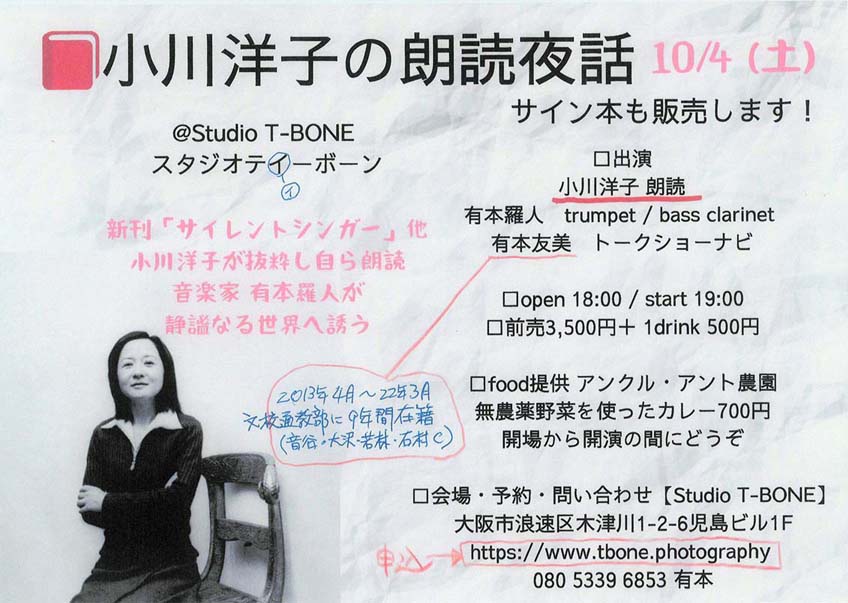 小川洋子の朗読夜話 10/4 (土)
サイン本も販売します！
@Studio T-BONE
スタジオテイーボーン
イ
新刊「サイレントシンガー」他
小川洋子が抜粋し自ら朗読
音楽家 有本羅人が
静謐なる世界へ誘う
□出演
小川洋子 朗読
有本羅人　trumpet / bass clarinet
有本友美　トークショーナビ
□open 18:00 / start 19:00
□前売3,500円＋ 1drink 500円
2013年4月～22年3月
文校通教部に9年間在籍
(音谷・大沢・若林・石村C)
□food提供 アンクル・アント農園
無農薬野菜を使ったカレー700円
開場から開演の間にどうぞ
□会場・予約・問い合わせ【Studio T-BONE】
大阪市浪速区木津川1-2-6児島ビル1F
申込→ https://www.tbone.photography
080 5339 6853 有本